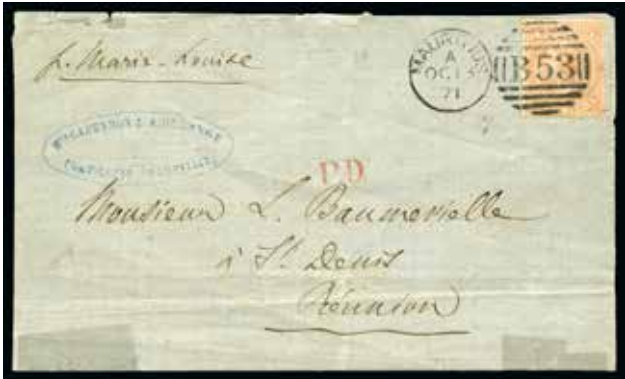 p. Marie-Louise
MAURITIUS
A
OC 13
71
B53
P.D.
Monsieur L. Baumevielle
à St. Denis
Réunion